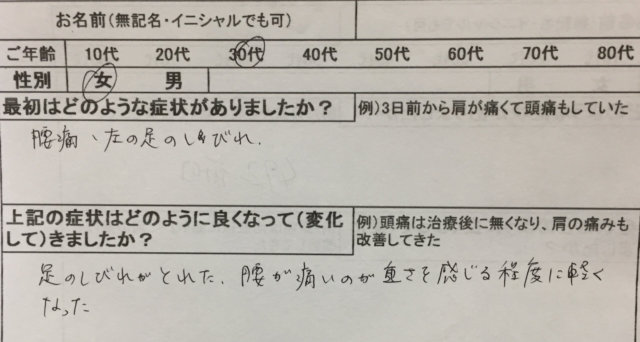 お名前(無記名・イニシャルでも可)
ご年齢 10代 20代 30代 40代 50代 60代 70代 80代
性別 女 男
最初はどのような症状がありましたか？ 例)3日前から肩が痛くて頭痛もしていた
腰痛、左の足のしびれ.
上記の症状はどのように良くなって(変化して)きましたか？ 例)頭痛は治療後に無くなり、肩の痛みも改善してきた
足のしびれがとれた. 腰が痛いのが重さを感じる程度に軽く
なった